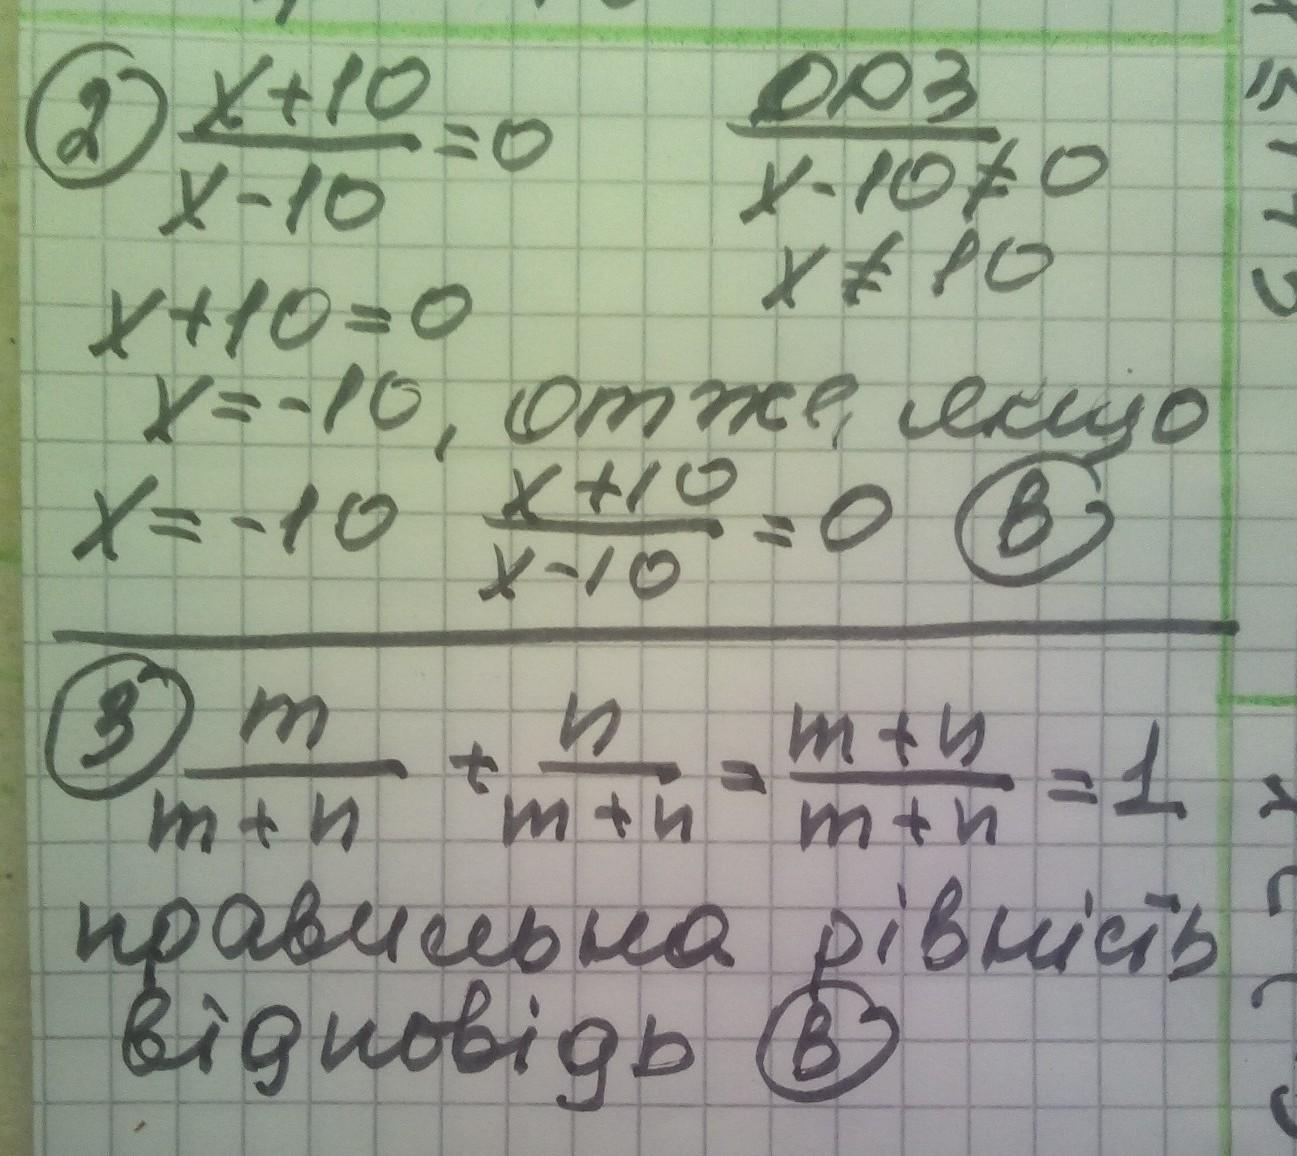 ② (x+10)/(x-10) = 0
ОДЗ
x-10≠0
x≠10
x+10=0
x=-10, отже, якщо
x=-10 (x+10)/(x-10) = 0 Ⓑ
③ m/(m+n) + n/(m+n) = (m+n)/(m+n) = 1
правильна рівність
відповідь Ⓑ